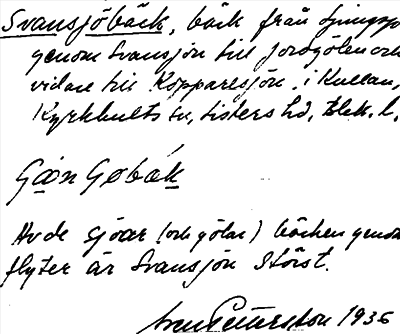 Svansjöbäck, bäck från
genom Svansjön till Jordgölen och
vidare till Kopparesjön. i Kullan,
Kyrkhults sn, Listers hd, Blek. l.
Av de sjöar (och gölar) bäcken genom
flyter är Svansjön störst.
Pettersson 1936